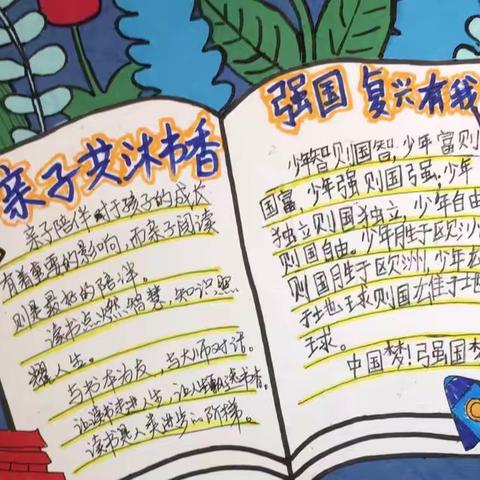 亲子共沐书香
亲子陪伴对于孩子的成长
有着重要的影响,而亲子阅读
则是最好的陪伴。
读书点燃智慧,知识照
耀人生。
与书本为友,与大师对话。
让读书走进人生,让人生飘逸书香。
读书是人类进步的阶梯。
强国 复兴有我
少年智则国智,少年富则
国富,少年强则国强,少年
独立则国独立,少年自由
则国自由。少年胜于欧洲
则国胜于欧洲,少年雄
于地球则国雄于地
球。
中国梦!强国梦